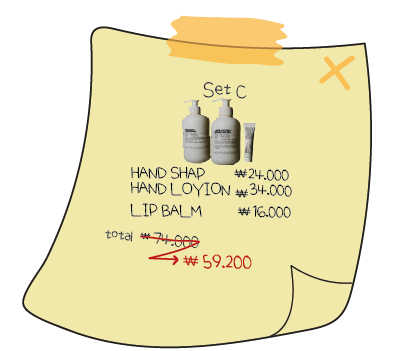 Set C
HAND SHAP ₩24.000
HAND LOYION ₩34.000
LIP BALM ₩16.000
total ₩74.000
₩59.200